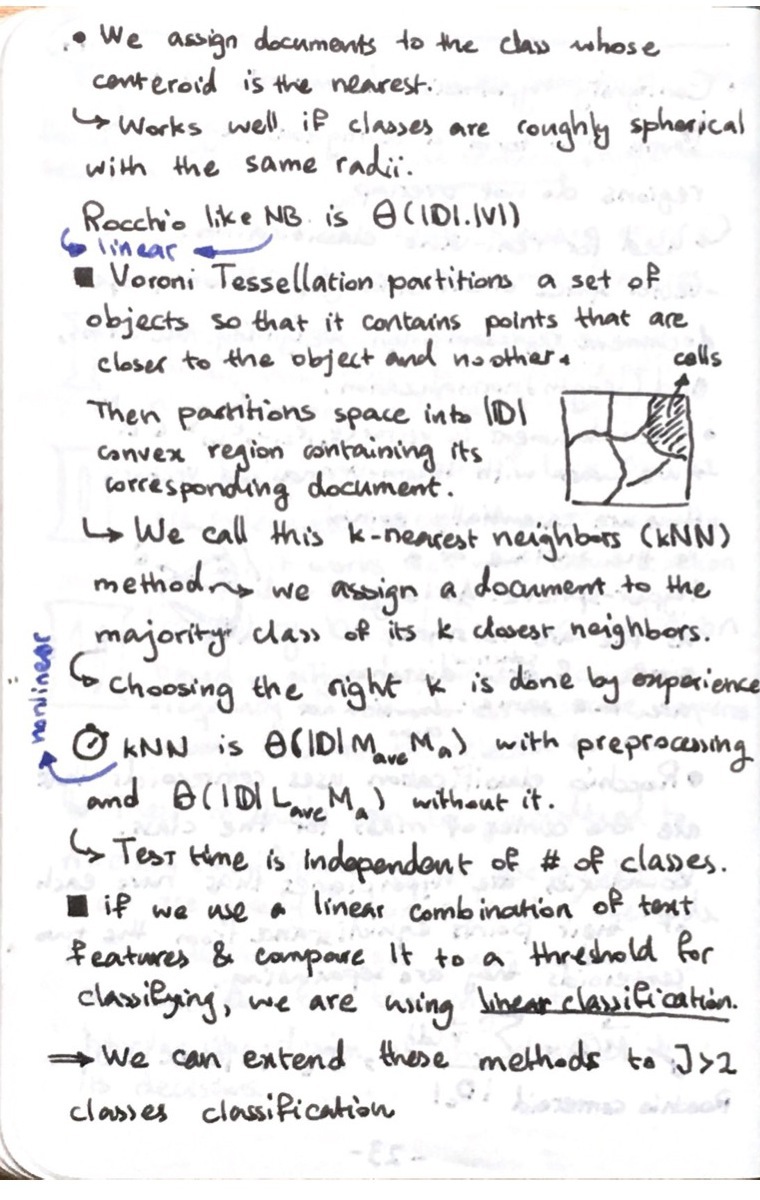 • We assign documents to the class whose
centeroid is the nearest.
↳ Works well if classes are roughly spherical
with the same radii.
Rocchio like NB is Θ(|D|.|V|)
linear
■ Voroni Tessellation partitions a set of
objects so that it contains points that are
closer to the object and no other.
cells
Then partitions space into |D|
convex region containing its
corresponding document.
↳ We call this k-nearest neighbors (kNN)
method ⇝ we assign a document to the
majority class of its k closest neighbors.
↳ Choosing the right k is done by experience
nonlinear
kNN is Θ(|D| M_ave M_a) with preprocessing
and Θ(|D| L_ave M_a) without it.
↳ Test time is independent of # of classes.
■ if we use a linear combination of text
features & compare it to a threshold for
classifying, we are using linear classification.
⇒ We can extend these methods to J>2
classes classification